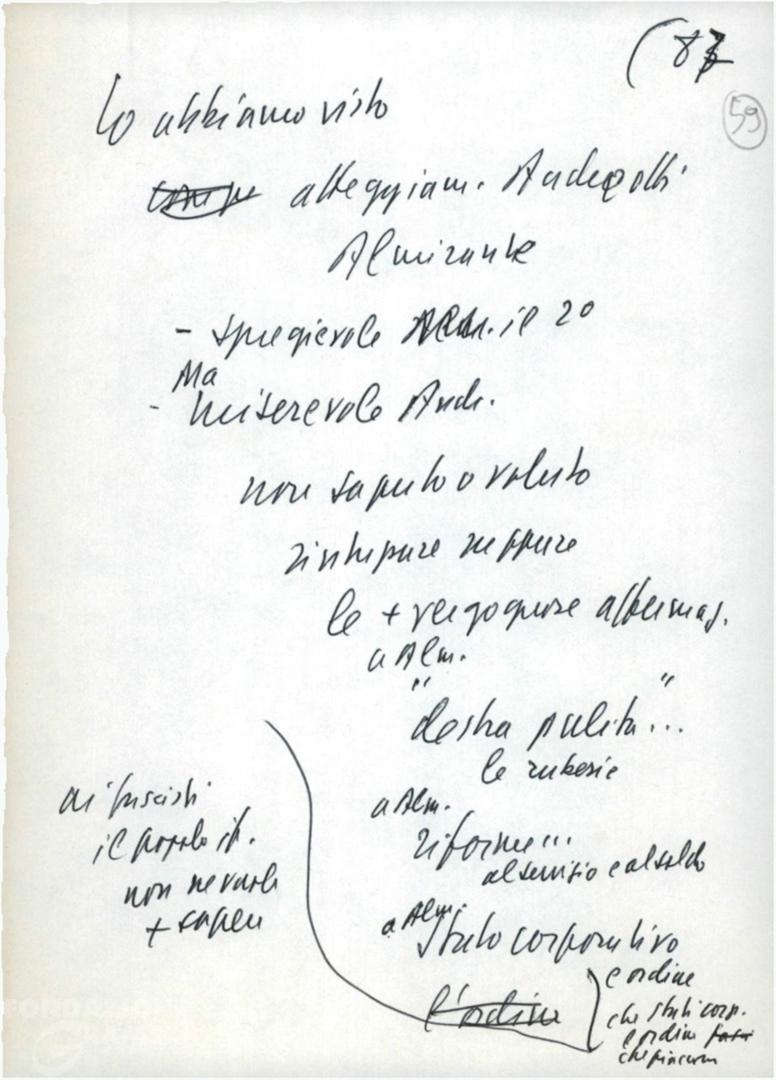 (87
59
Lo abbiamo visto
atteggiam. Andreotti
Almirante
- spregievole Alm. il 2º
Ma
- miserevole Andr.
non saputo o voluto
rintuzzare neppure
le + vergognose affermaz.
a Alm.
" "
destra pulita...
le ruberie
a Alm.
riforme...
al servizio e al soldo
a Alm.
Stato corporativo
l'ordine
e ordine
che stati corp.
e ordini
che
ai fascisti
il popolo it.
non ne vuole
+ sapere
FONDAZIO